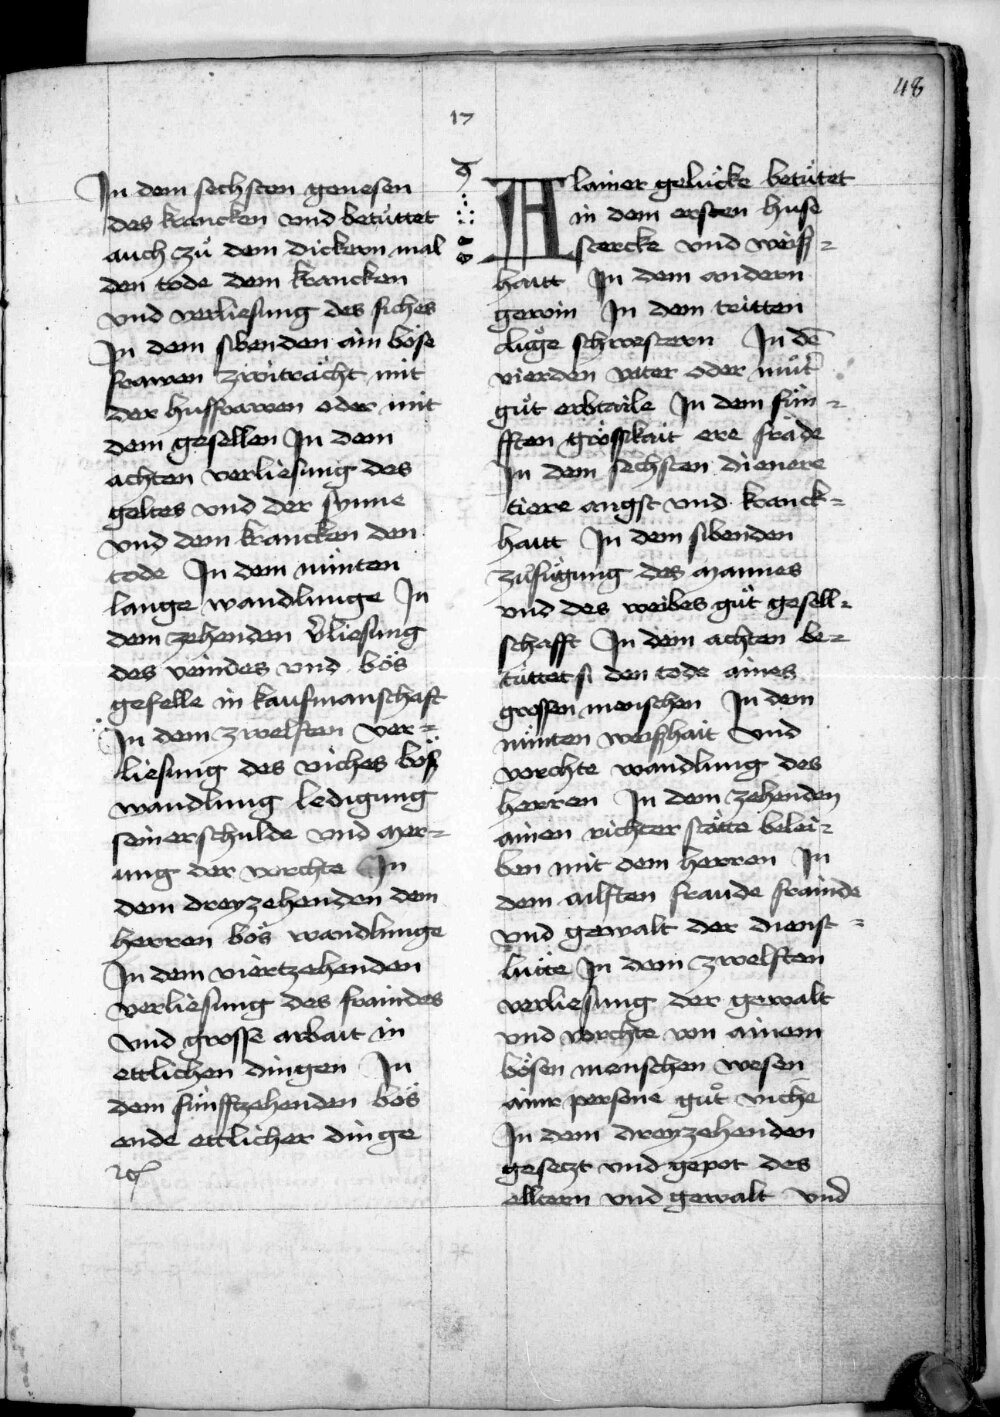 48
17
In dem sechsten genesen
des krancken vnd betüttet
auch zů dem dickern mal
den tode dem krancken
vnd verliesung des siches
In dem sibenden ain böse
frawen zwiträcht mit
der husfrawen oder mit
dem gesellen In dem
achten verliesung des
geltes vnd der synne
vnd dem krancken den
tode In dem nünten
lange wandlunge In
dem zehenden v̄liesung
des veindes vnd bös
geselle in kaufmanschaft
In dem zwelften ver=
liesung des viches böß
wandlung ledigung
seiner schulde vnd mer=
ung der vorchte In
dem dreyzehenden dem
herren bös wandlunge
In dem viertzehenden
verliesung des fraindes
vnd grosse arbait in
ettlichen dingen In
dem fünfftzehenden bös
ende ettlicher dinge
⁊c
A lainer gelücke betütet
in dem ersten huse
stercke vnd weiß=
haitt In dem andern
gewin In dem tritten
clůge schwestern In dē
vierden väter oder můt̄
gůt erbtaile In dem fün=
fften grösskait ere fräde
In dem sechsten dienere
tiere angst vnd kranck=
haitt In dem sibenden
zůfůgung des mannes
vnd des weibes gůt gesell=
schafft In dem achten be=
tüttet si den tode aines
grossen menschen In dem
nünten weisshait vnd
vorchte wandlung des
herren In dem zehenden
ainen richter stätte belei=
ben mit dem herren In
dem ailften fraude frainde
vnd gewalt der dienst=
lütte In dem zwelften
verliesung der gewalt
vnd vorchte von ainem
bösen menschen wesen
ainr persone gůt viche
In dem dreyzehenden
gesetzt vnd gepot des
elltern vnd gewalt vnd